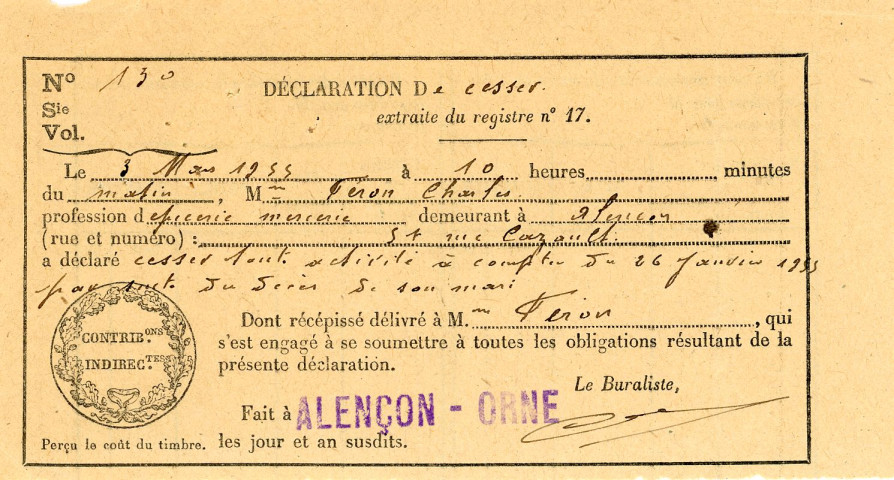 Nº 130
DÉCLARATION De cesser.
Sie
extraite du registre nº 17.
Vol.
Le 3 Mars 1955 à 10 heures minutes
du matin, Mme Feron Charles
profession d epicerie mercerie demeurant à Alençon
(rue et numéro) : rue Cazault.
a déclaré cesser toute activité à compter du 26 Janvier 1955
par suite du décès de son mari
CONTRIB.ONS
INDIREC.TES
Dont récépissé délivré à M.me Feron, qui
s'est engagé à se soumettre à toutes les obligations résultant de la
présente déclaration.
Le Buraliste,
Fait à ALENÇON - ORNE
Perçu le coût du timbre. les jour et an susdits.